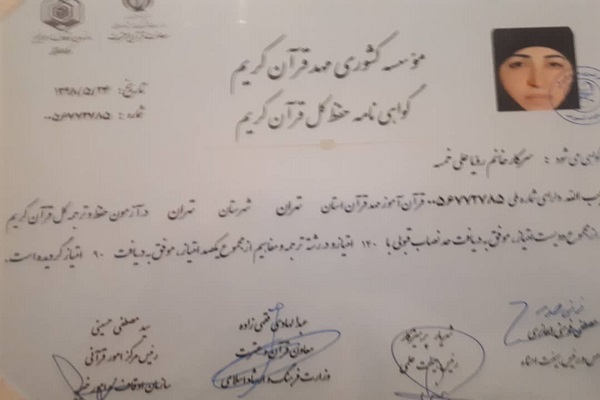 مؤسسه کشوری مهد قرآن کریم
گواهی نامه حفظ کل قرآن کریم
تاریخ: ۱۳۹۸/۵/۲۳
شماره: ۰۰۵۶۷۷۲۷۸۵
گواهی می شود : سرکار خانم رویا علی خمسه
دارای شماره ملی ۰۰۵۶۷۷۲۷۸۵ قرآن آموز مهد قرآن استان تهران شهرستان تهران در آزمون حفظ و ترجمه کل قرآن کریم
از مجموع دویست امتیاز، موفق به دریافت حد نصاب قبولی با ۱۲۰ امتیاز و در رشته ترجمه و مفاهیم از مجموع یکصد امتیاز، موفق به دریافت ۹۰ امتیاز گردیده است.
شهریار پرهیزکار
رئیس هیئت علمی
عبدالهادی فقهی زاده
معاون قرآن و عترت
وزارت فرهنگ و ارشاد اسلامی
سید مصطفی حسینی
رئیس مرکز امور قرآنی
سازمان اوقاف و امور خیریه